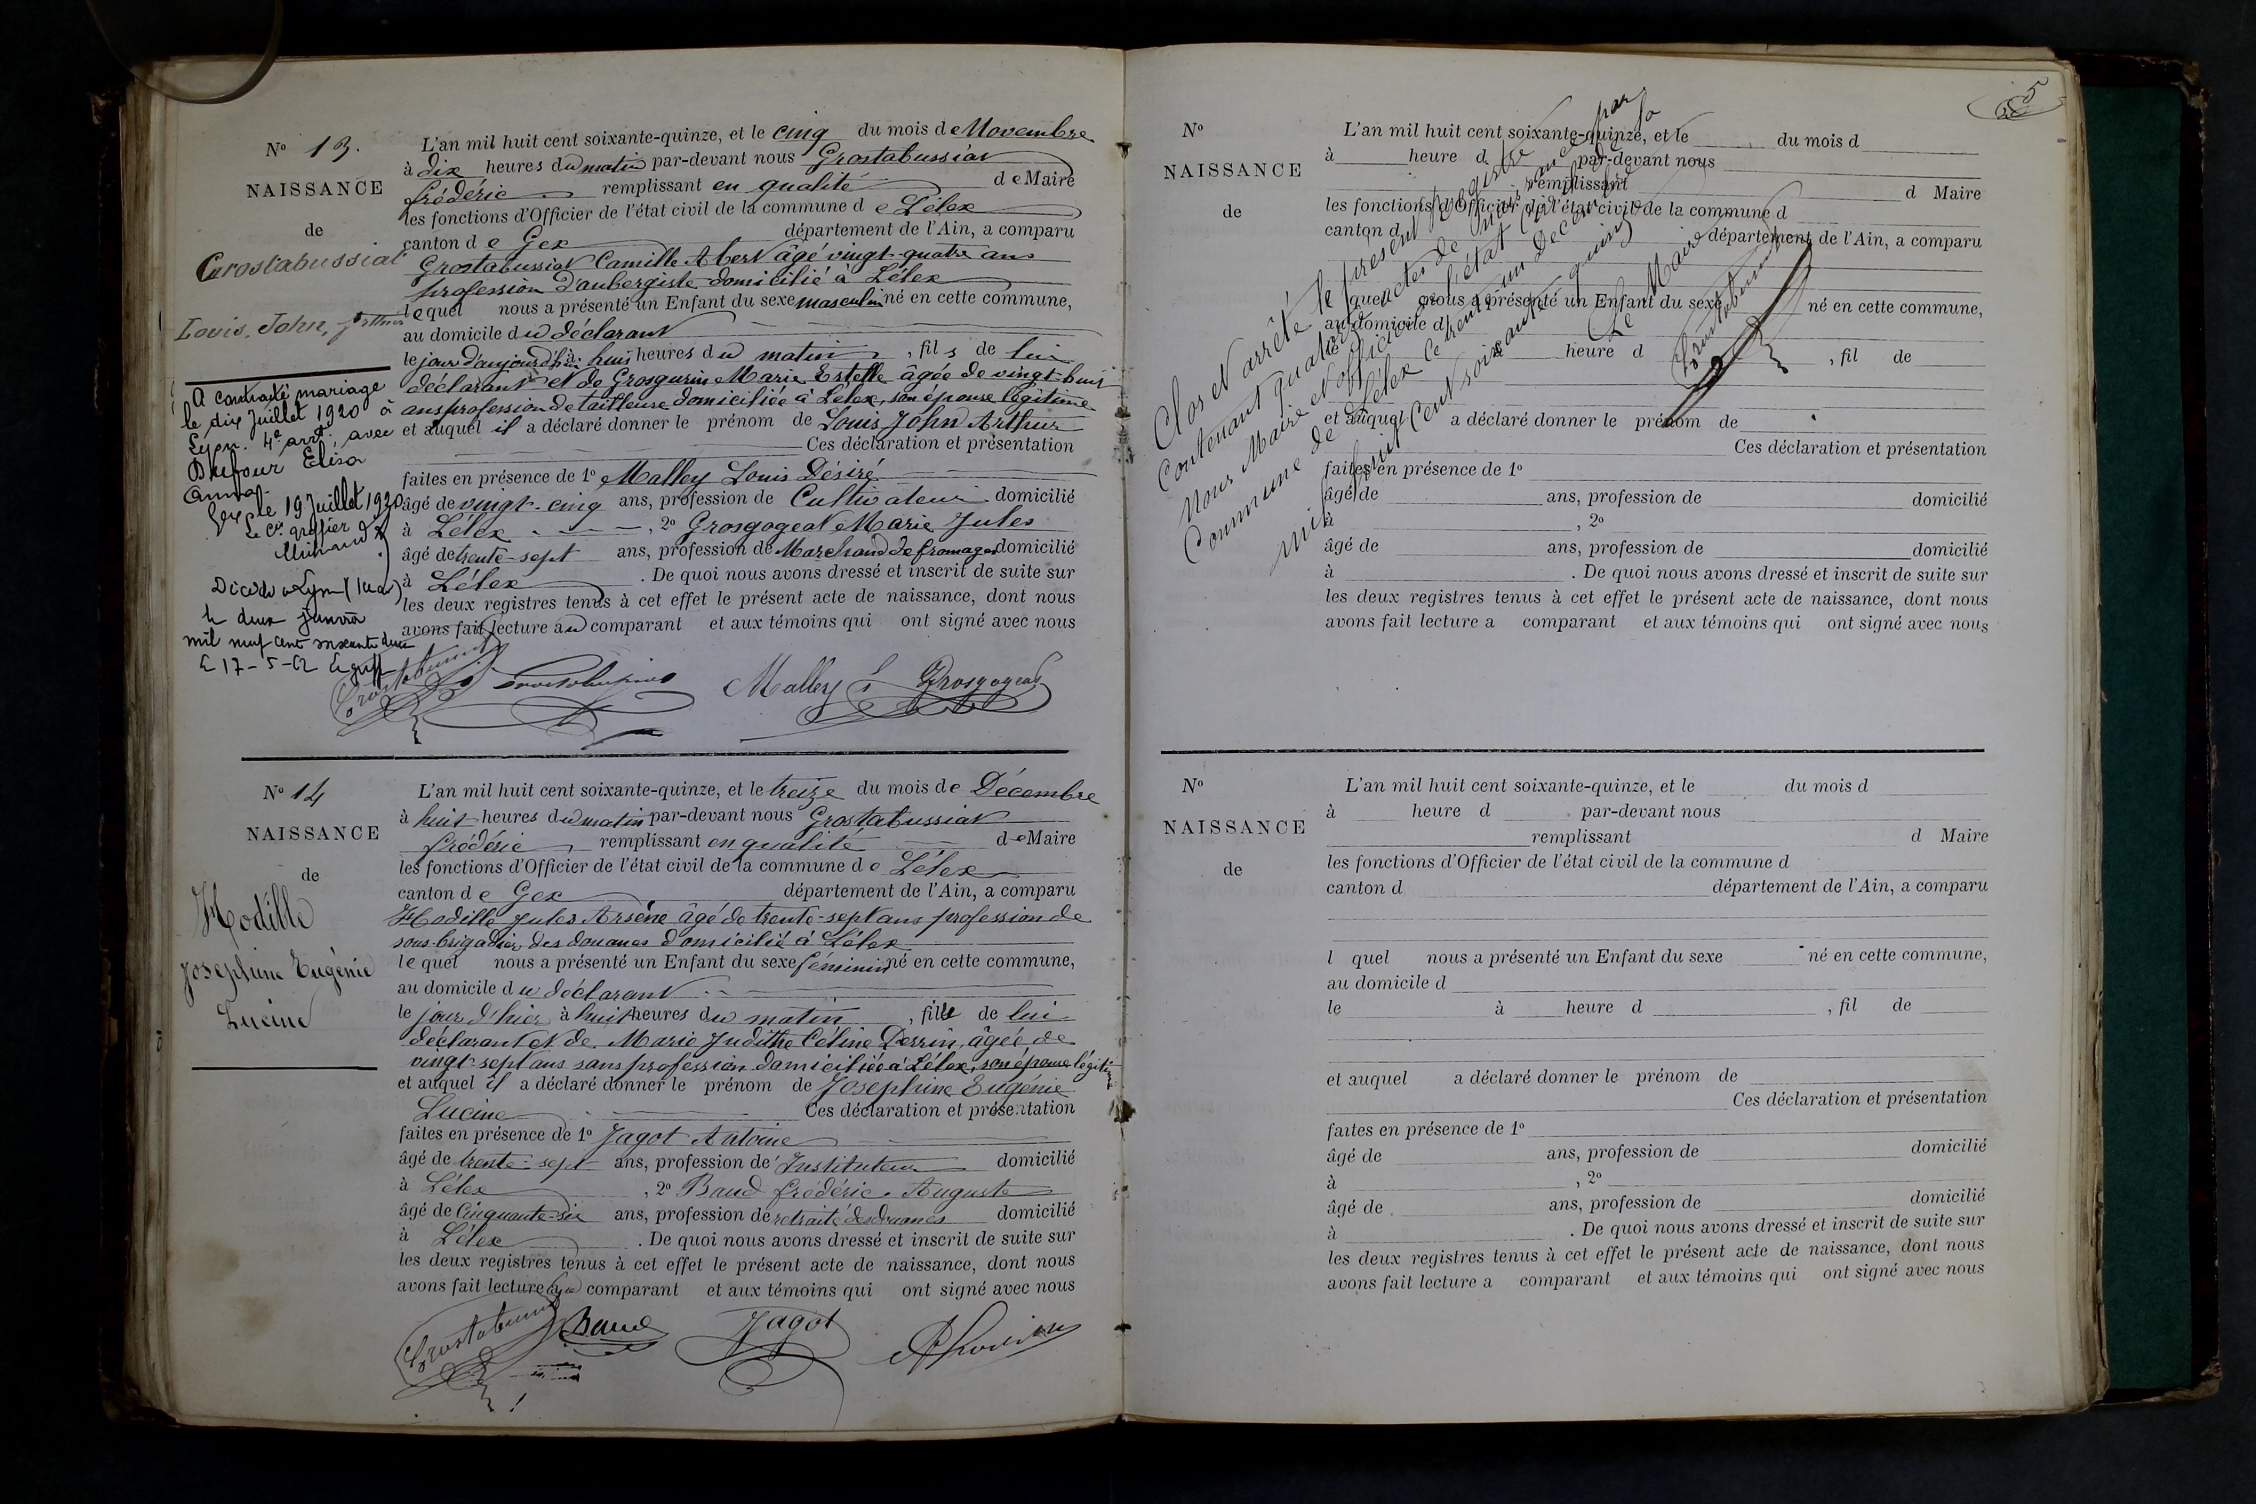 No 13.
NAISSANCE
de
Grostabussiat
Louis, John, Arthur
A contracté mariage
le dix Juillet 1920 à
Lyon. 4e arrt, avec
Dufour Elisa
Anna.
Gex le 19 Juillet 1920
Le Cis greffier
Décédé à Lyon
le deux janvier
mil neuf cent soixante deux
Le 17-5-62 Le greff
L'an mil huit cent soixante-quinze, et le cinq du mois de Novembre
à dix heures du matin par-devant nous Grostabussiat
frédéric remplissant en qualité de Maire
les fonctions d'Officier de l'état civil de la commune de Lélex
canton de Gex département de l'Ain, a comparu
Grostabussiat Camille Albert âgé vingt-quatre ans
profession d'aubergiste domicilié à Lélex
lequel nous a présenté un Enfant du sexe masculin né en cette commune,
au domicile du déclarant
le jour d'aujourd'hui à huit heures du matin, fils de lui
déclarant et de Grosgurin Marie Estelle âgée de vingt-huit
ans profession de tailleuse domiciliée à Lélex, son épouse légitime
et auquel il a déclaré donner le prénom de Louis John Arthur
Ces déclaration et présentation
faites en présence de 1o Malley Louis Désiré
âgé de vingt-cinq ans, profession de Cultivateur domicilié
à Lélex, 2o Grosgogeat Marie Jules
âgé de trente-sept ans, profession de Marchand de fromages domicilié
à Lélex. De quoi nous avons dressé et inscrit de suite sur
les deux registres tenus à cet effet le présent acte de naissance, dont nous
avons fait lecture au comparant et aux témoins qui ont signé avec nous
Grostabussiat Grostabussiat Malley L Grosgogeat
No 14
NAISSANCE
de
Hodille
Josephine Eugénie
Lucine
L'an mil huit cent soixante-quinze, et le treize du mois de Décembre
à huit heures du matin par-devant nous Grostabussiat
frédéric remplissant en qualité de Maire
les fonctions d'Officier de l'état civil de la commune de Lélex
canton de Gex département de l'Ain, a comparu
Hodille Jules Arsène âgé de trente-sept ans profession de
sous-brigadier des douanes domicilié à Lélex
lequel nous a présenté un Enfant du sexe féminin né en cette commune,
au domicile du déclarant
le jour d'hier à huit heures du matin, fille de lui
déclarant et de Marie Judithe Céline Perrin, âgée de
vingt-sept ans sans profession domiciliée à Lélex, son épouse légitime
et auquel il a déclaré donner le prénom de Josephine Eugénie
Lucine Ces déclaration et présentation
faites en présence de 1o Jagot Antoine
âgé de trente-sept ans, profession de Instituteur domicilié
à Lélex, 2o Baud frédéric Auguste
âgé de Cinquante-six ans, profession de retraité des douanes domicilié
à Lélex. De quoi nous avons dressé et inscrit de suite sur
les deux registres tenus à cet effet le présent acte de naissance, dont nous
avons fait lecture au comparant et aux témoins qui ont signé avec nous
Grostabussiat Baud Jagot
5
No
NAISSANCE
de
L'an mil huit cent soixante-quinze, et le du mois d
à heure d par-devant nous
remplissant d Maire
les fonctions d'Officier de l'état civil de la commune d
canton d département de l'Ain, a comparu
l quel nous a présenté un Enfant du sexe né en cette commune,
au domicile d
le à heure d , fil de
et auquel a déclaré donner le prénom de
Ces déclaration et présentation
faites en présence de 1o
âgé de ans, profession de domicilié
à , 2o
âgé de ans, profession de domicilié
à . De quoi nous avons dressé et inscrit de suite sur
les deux registres tenus à cet effet le présent acte de naissance, dont nous
avons fait lecture a comparant et aux témoins qui ont signé avec nous
Clos et arrêté le présent registre
Contenant quatorze actes de naissance par
Nous Maire et officier de l'état Civil de la
Commune de Lélex le trente-un Décembre
mil huit Cent soixante quinze
Le Maire
Grostabussiat
No
NAISSANCE
de
L'an mil huit cent soixante-quinze, et le du mois d
à heure d par-devant nous
remplissant d Maire
les fonctions d'Officier de l'état civil de la commune d
canton d département de l'Ain, a comparu
l quel nous a présenté un Enfant du sexe né en cette commune,
au domicile d
le à heure d , fil de
et auquel a déclaré donner le prénom de
Ces déclaration et présentation
faites en présence de 1o
âgé de ans, profession de domicilié
à , 2o
âgé de ans, profession de domicilié
à . De quoi nous avons dressé et inscrit de suite sur
les deux registres tenus à cet effet le présent acte de naissance, dont nous
avons fait lecture a comparant et aux témoins qui ont signé avec nous